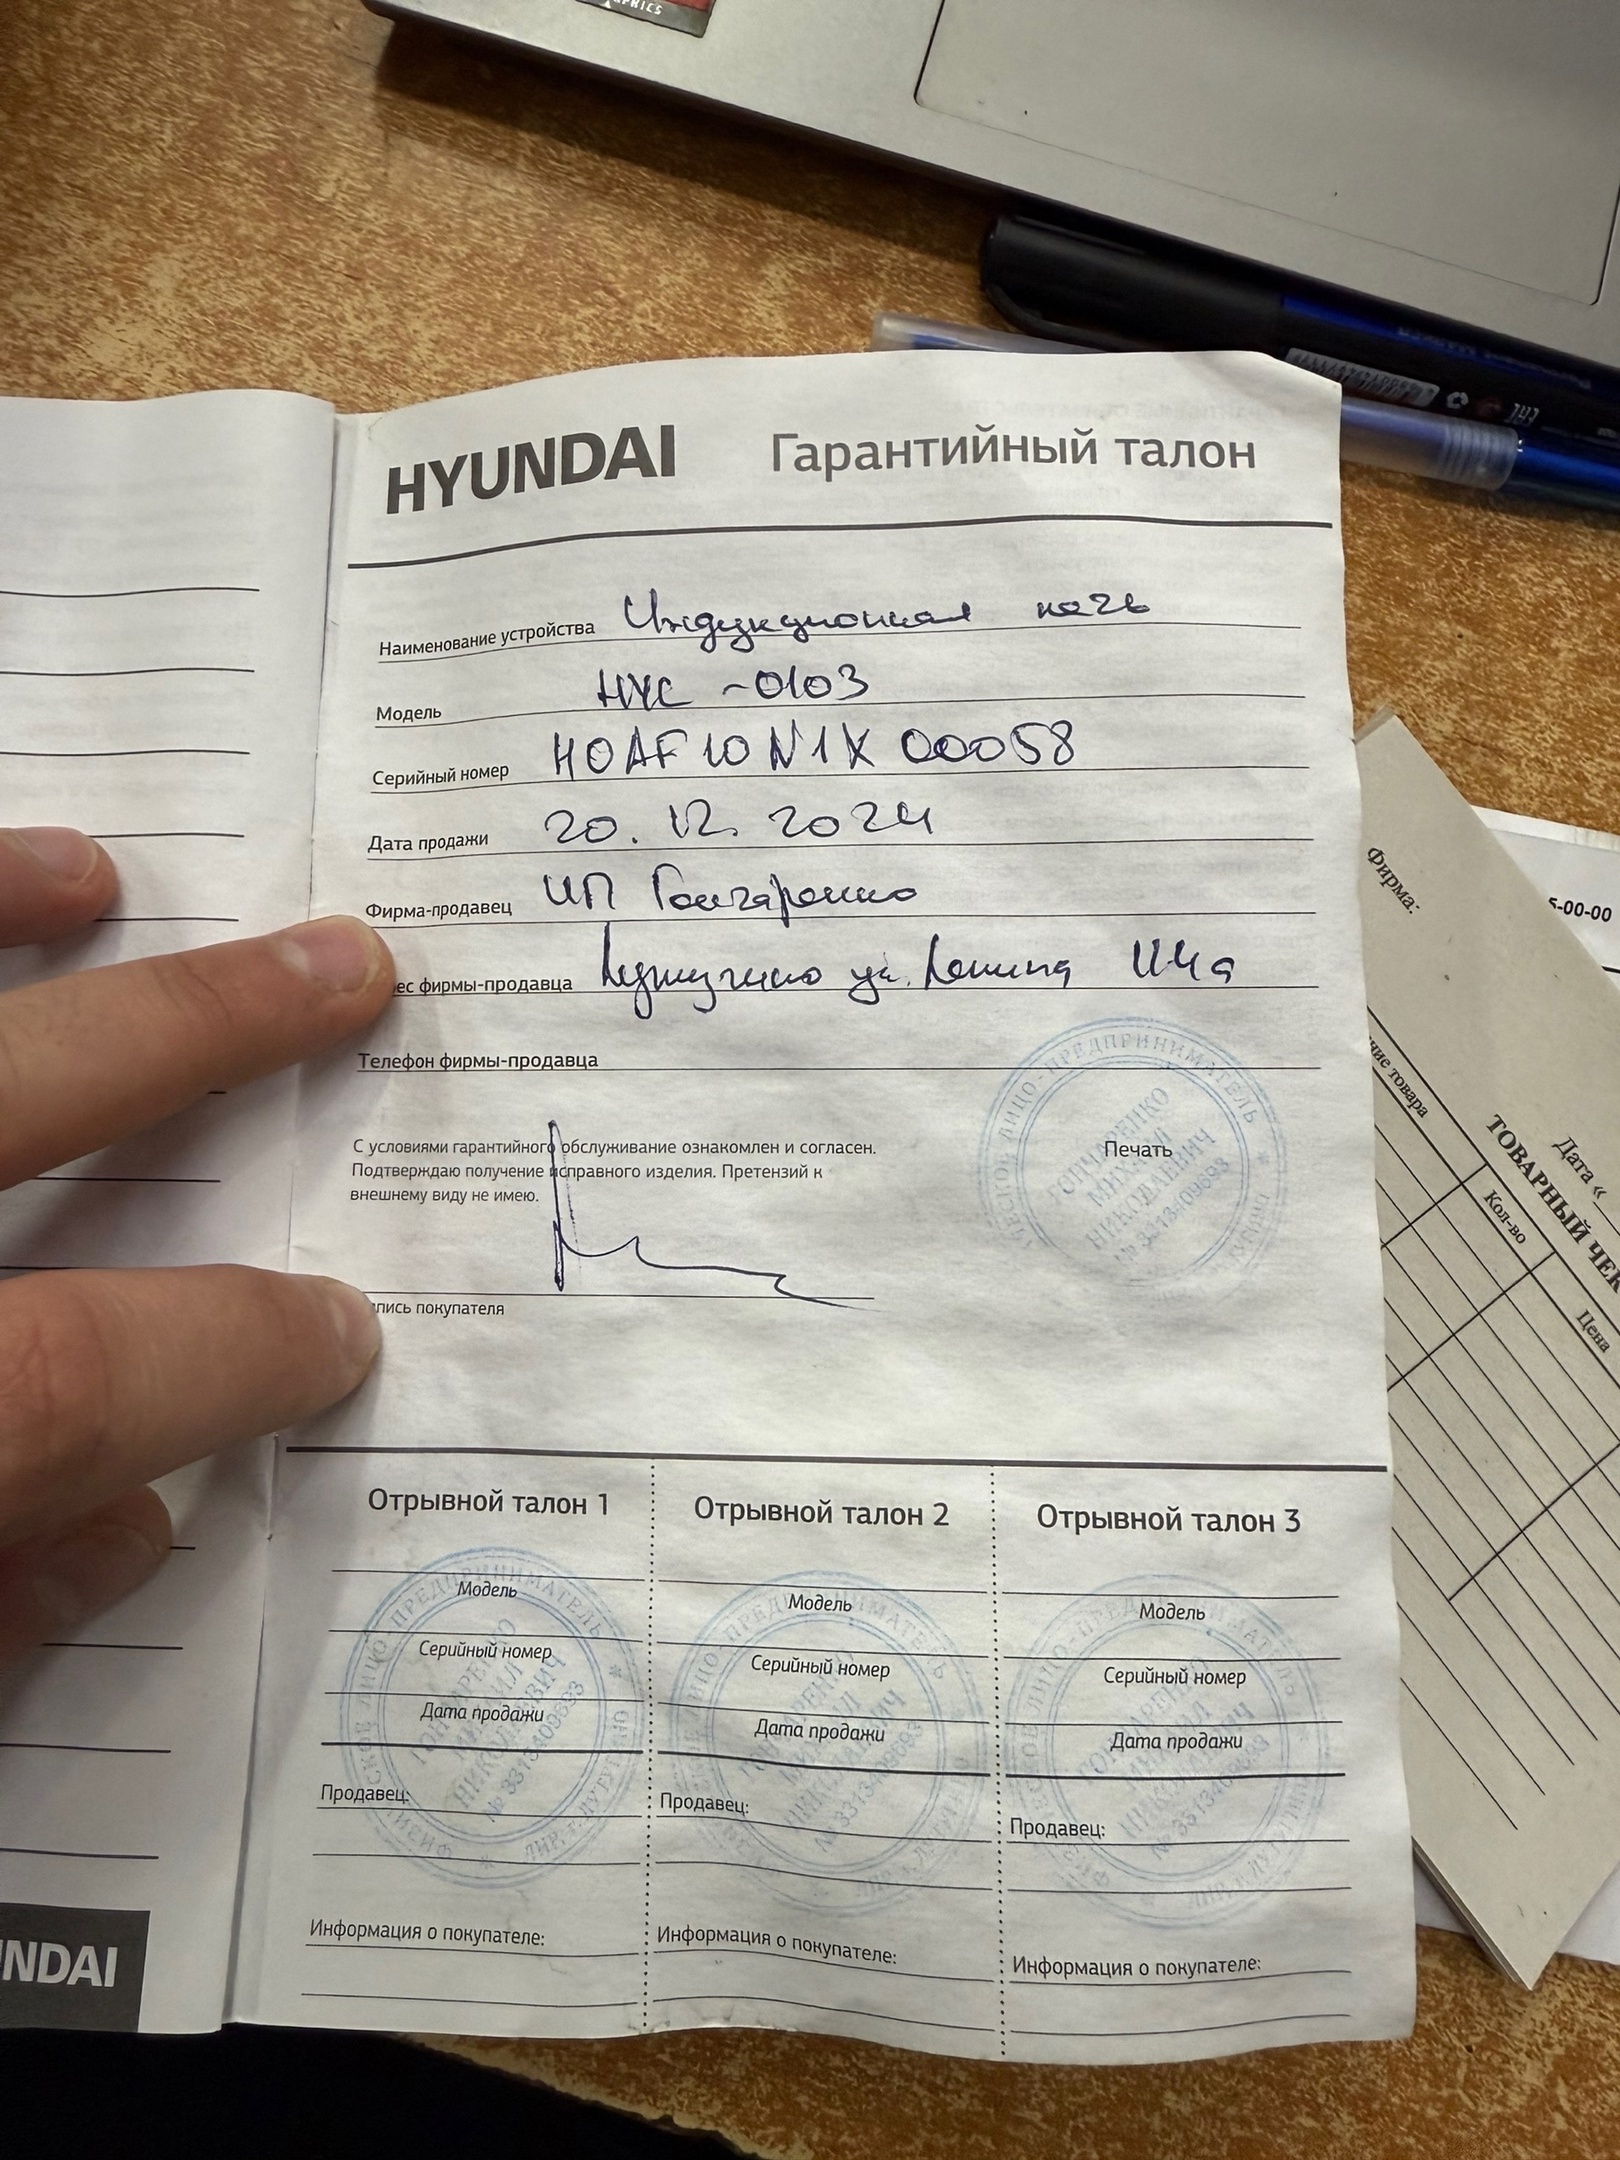 HYUNDAI Гарантийный талон
Наименование устройства Индукционная печь
Модель HYC-0103
Серийный номер HOAF10N1X00058
Дата продажи 20.12.2024
Фирма-продавец ИП Гончаренко
ес фирмы-продавца ул. Ленина
Телефон фирмы-продавца
С условиями гарантийного обслуживание ознакомлен и согласен.
Подтверждаю получение исправного изделия. Претензий к
внешнему виду не имею.
пись покупателя
Печать
ЛИЦО-ПРЕДПРИНИМАТЕЛЬ
ГОНЧАРЕНКО
НИКОЛАЕВИЧ
Отрывной талон 1
Модель
Серийный номер
Дата продажи
Продавец:
Информация о покупателе:
Отрывной талон 2
Модель
Серийный номер
Дата продажи
Продавец:
Информация о покупателе:
Отрывной талон 3
Модель
Серийный номер
Дата продажи
Продавец:
Информация о покупателе:
NDAI
Фирма:
5-00-00
ТОВАРНЫЙ ЧЕК
Дата «
ние товара
Кол-во
Цена